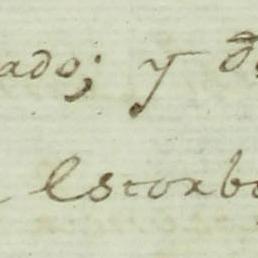 ado; y
estorbo